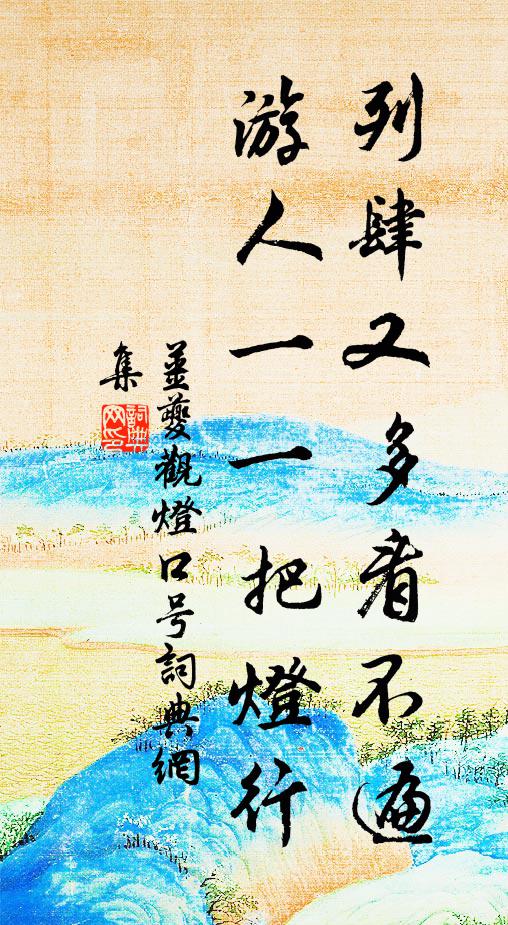 列肆又多看不遍
游人一一把燈行
姜夔觀燈口号詞典網
集
詞典網印